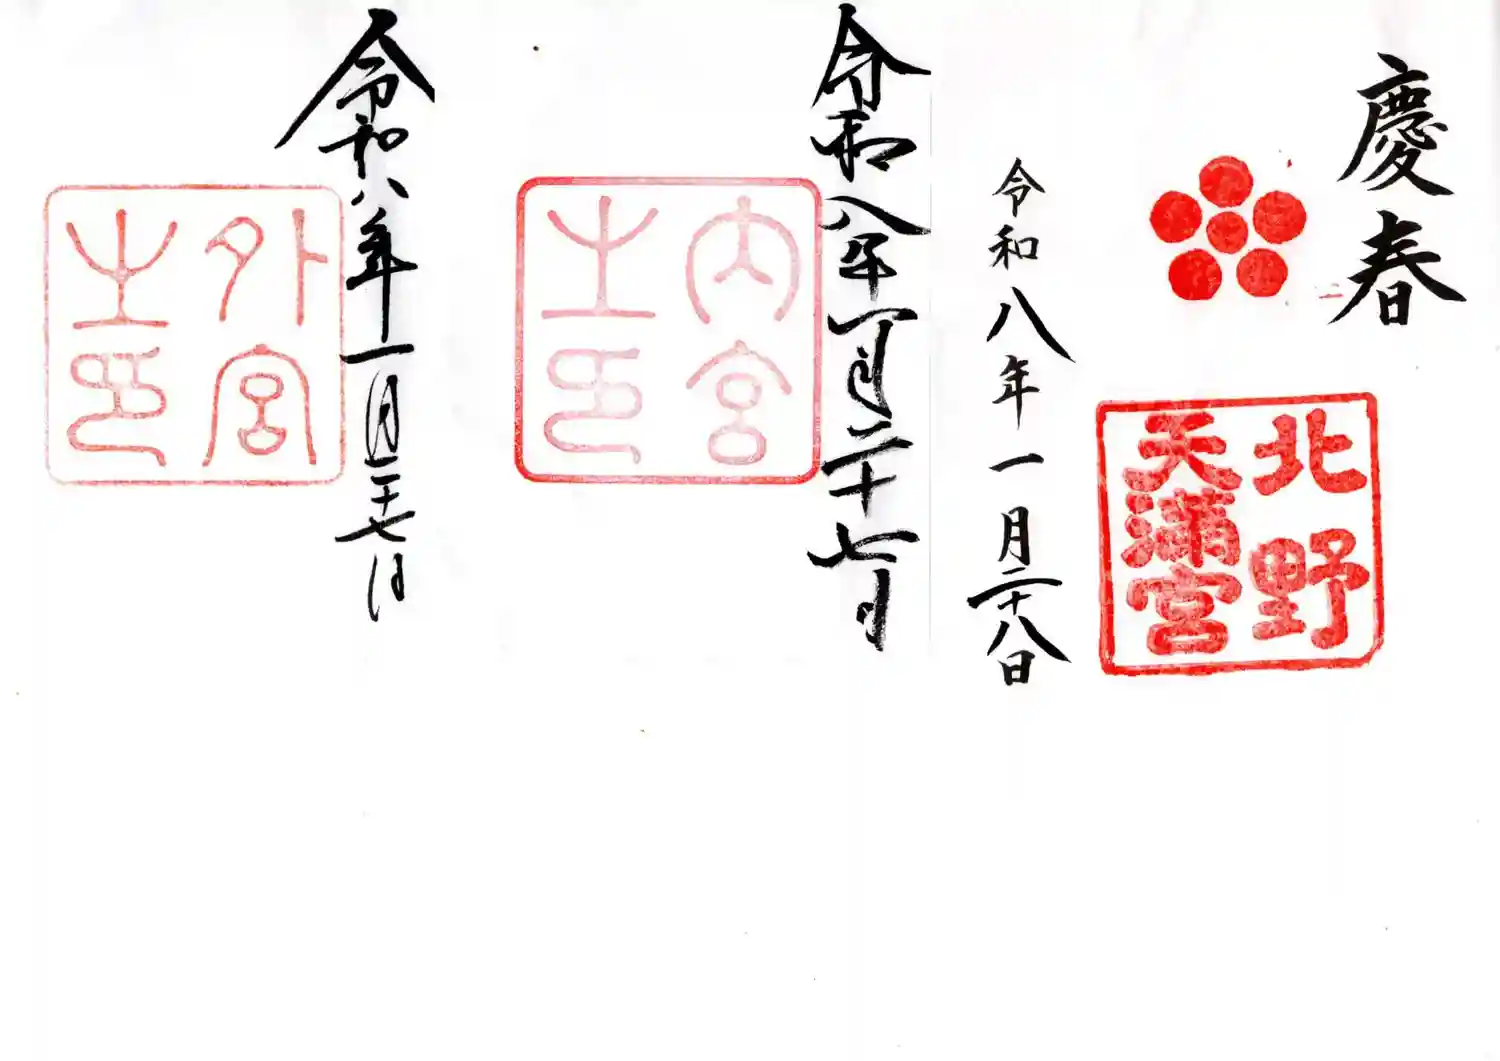 令和八年一月二十七日
外宮
之印
令和八年一月二十七日
内宮
之印
慶春
北野
天満宮
令和八年一月二十八日